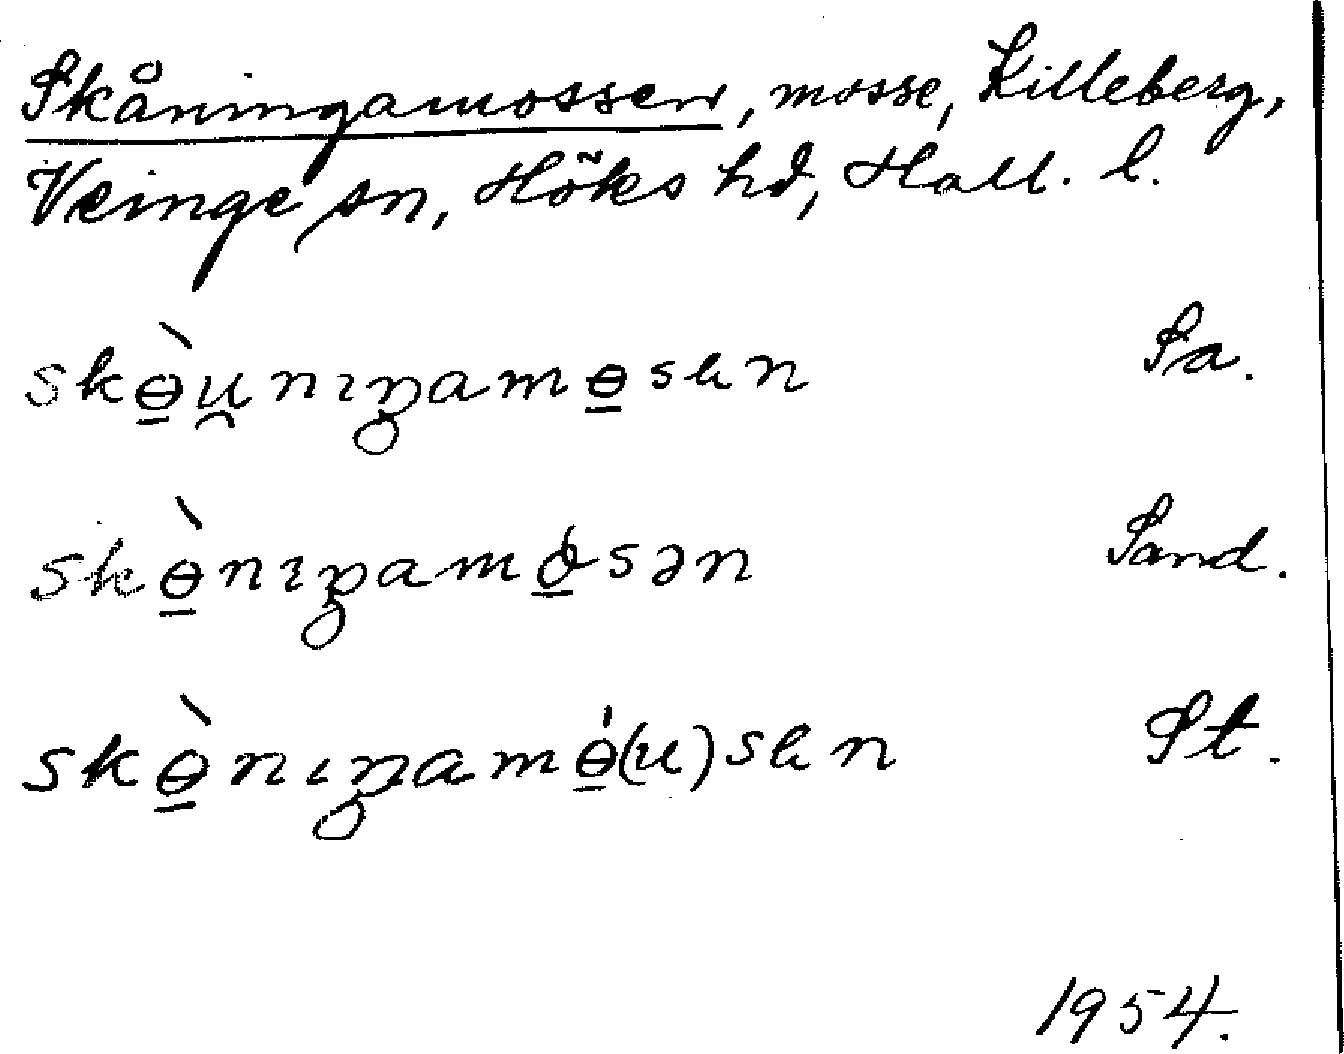 Skåningamossen, mosse, Killeberg,
Veinge sn, Höks hd, Hall. l.
skɵ̠̀u̯nıŋamɵ̠sen Sa.
skɵ̠̀nıŋamɵ̠́sən Sand.
skɵ̠̀nıŋamɵ̠́(u)sen St.
1954.